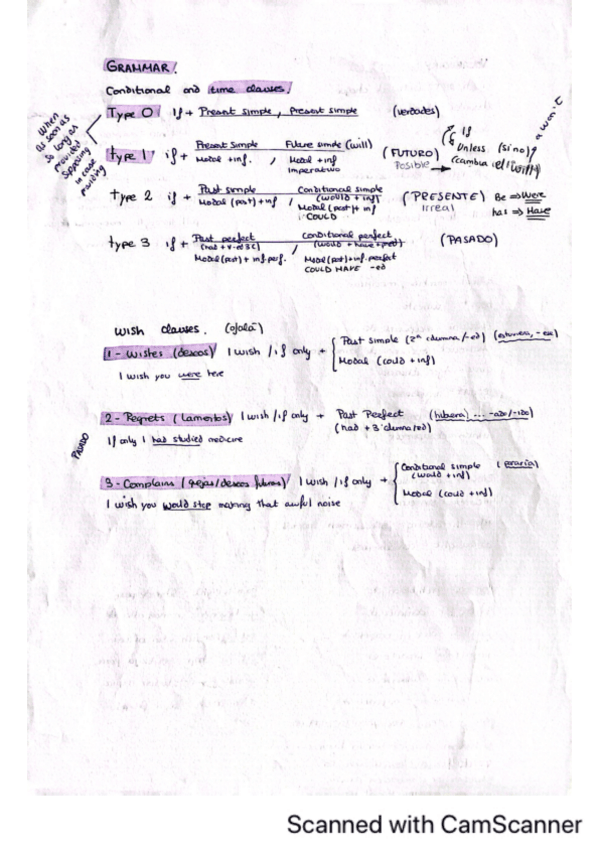 GRAMMAR.
Conditional and time clauses.
When
as soon as
so long as
provided
Supposing
in case
Type 0 If + Present simple, Present simple (verdades)
Type 1 if + Present simple , Future simple (will) (FUTURO)
Modal + inf. Modal + inf Posible
imperativo
If
Unless (sino)
(cambia el will)
Type 2 if + Past simple / Conditional simple (PRESENTE) Be ⇒ Were
Modal (past) + inf (would + inf) irreal has ⇒ Have
Modal (past) + inf
COULD
type 3 if + Past perfect / Conditional perfect (PASADO)
(had + v-ed 3C) (would + have + pred)
Modal (past) + inf. perf. Modal (past) + inf. perfect
COULD HAVE -ed
Wish clauses. (ojalá)
1 - Wishes (deseos) I wish / if only + Past simple (2ª columna /-ed)
Modal (could + inf)
I wish you were here
2 - Regrets (lamentos) I wish / if only + Past Perfect (hubiera ... -ado/-ido)
(had + 3ª columna /ed)
PASADO
If only I had studied medicine
3 - Complains (quejas/deseos futuros) I wish / if only + Conditional simple
(would + inf)
Modal (could + inf)
I wish you would stop making that awful noise
Scanned with CamScanner